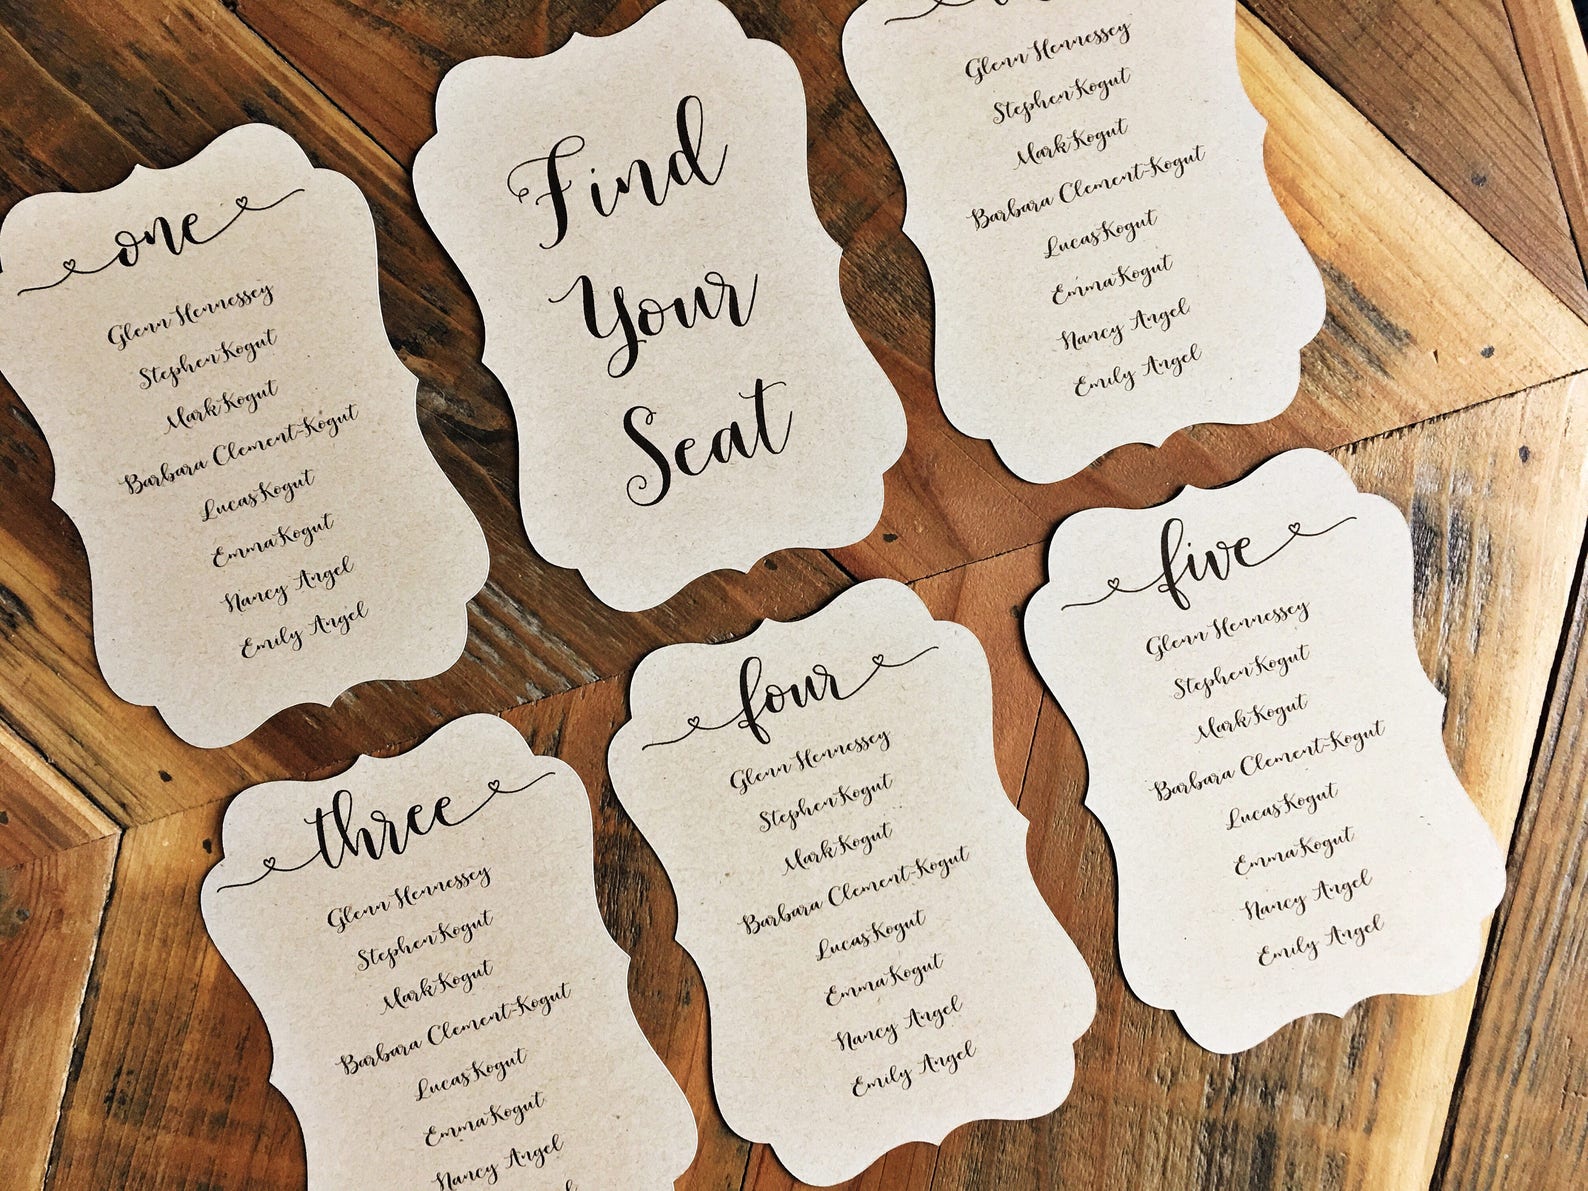 one
Glenn Hennessey
Stephen Kogut
Mark Kogut
Barbara Clement-Kogut
Lucas Kogut
Emma Kogut
Nancy Angel
Emily Angel
Find
Your
Seat
Glenn Hennessey
Stephen Kogut
Mark Kogut
Barbara Clement-Kogut
Lucas Kogut
Emma Kogut
Nancy Angel
Emily Angel
three
Glenn Hennessey
Stephen Kogut
Mark Kogut
Barbara Clement-Kogut
Lucas Kogut
Emma Kogut
Nancy Angel
four
Glenn Hennessey
Stephen Kogut
Mark Kogut
Barbara Clement-Kogut
Lucas Kogut
Emma Kogut
Nancy Angel
Emily Angel
five
Glenn Hennessey
Stephen Kogut
Mark Kogut
Barbara Clement-Kogut
Lucas Kogut
Emma Kogut
Nancy Angel
Emily Angel